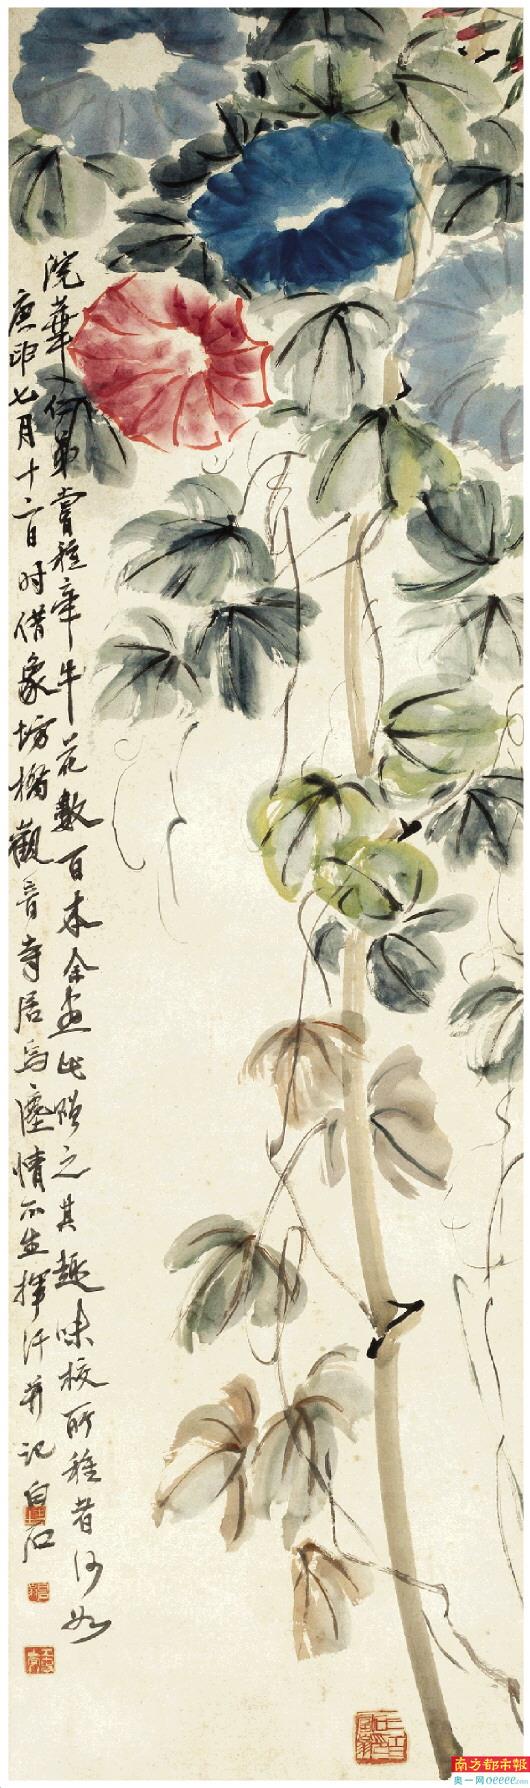 浣華仁弟嘗種牽牛花數百本余畫此贈之其趣味校所種者何如
庚申七月十二日时借象坊橋觀音寺居焉塵情不生揮汗并记白石
南方都市報
奥一网oeeee.com